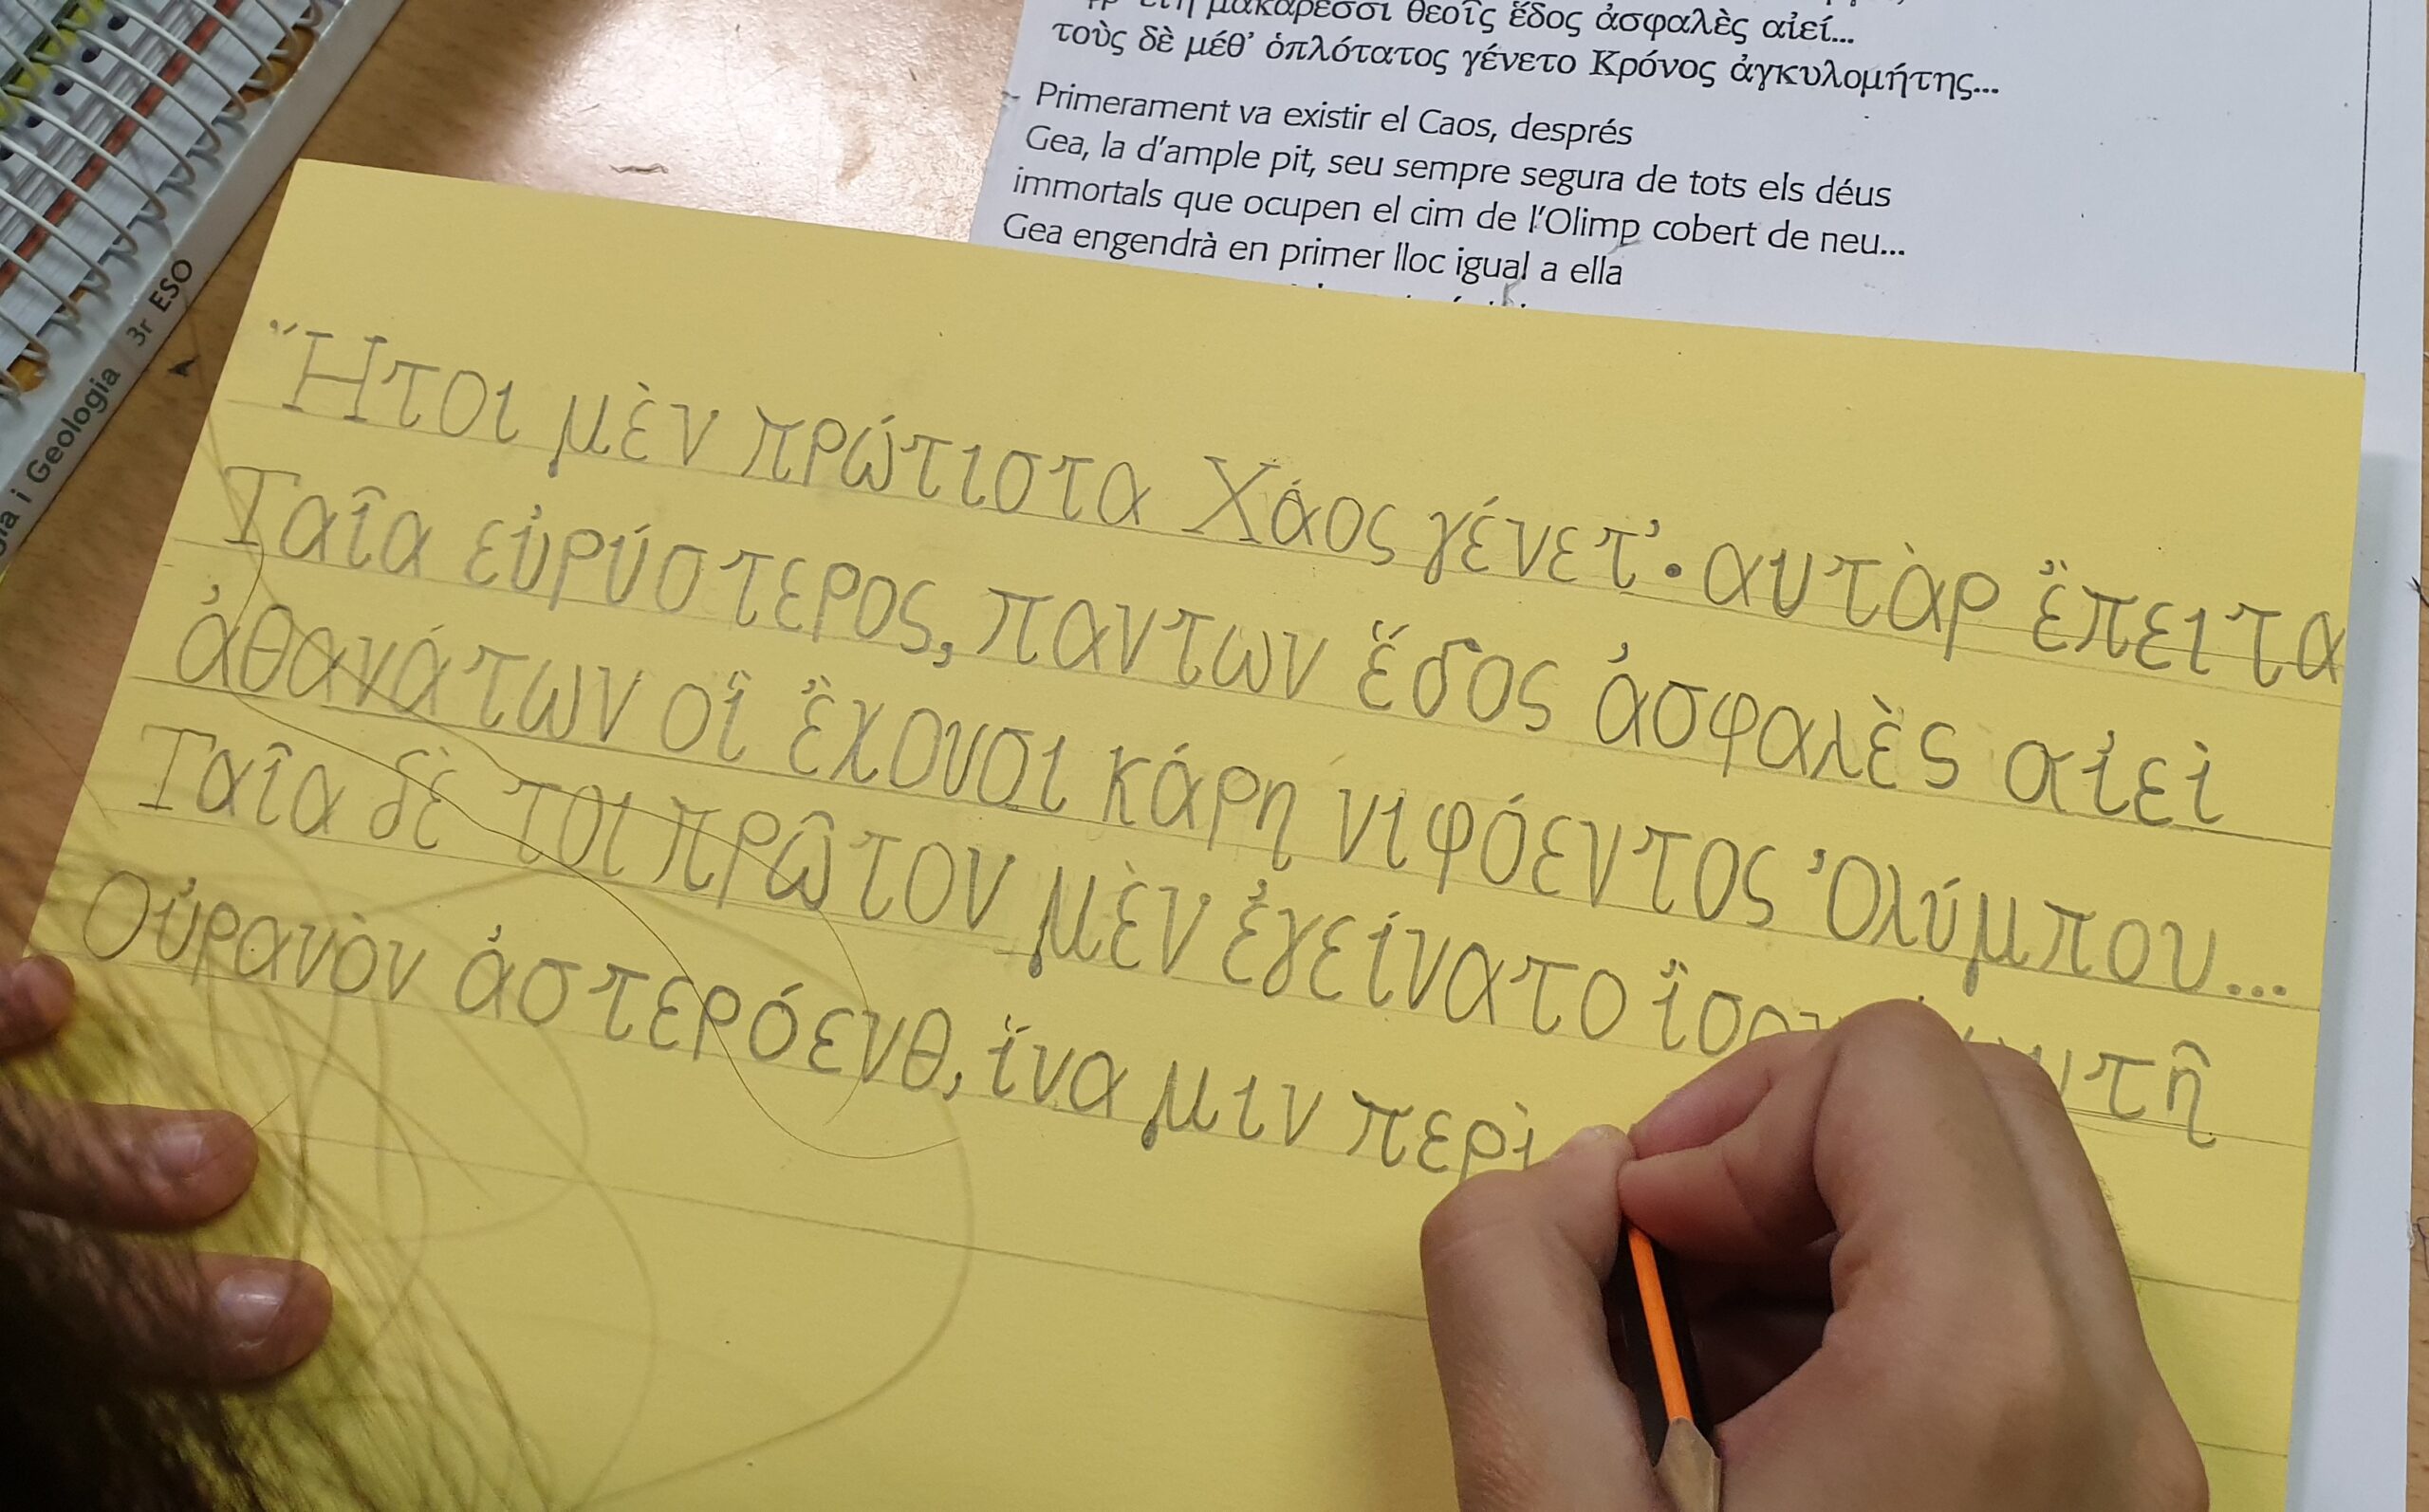 μακάρεσσι θεοῖς ἕδος ἀσφαλὲς αἰεί...
τοὺς δὲ μέθ' ὁπλότατος γένετο Κρόνος ἀγκυλομήτης...
Primerament va existir el Caos, després
Gea, la d'ample pit, seu sempre segura de tots els déus
immortals que ocupen el cim de l'Olimp cobert de neu...
Gea engendrà en primer lloc igual a ella
i Geologia 3r ESO
Ἤτοι μὲν πρώτιστα Χάος γένετ'· αυτὰρ ἔπειτα
Γαῖα εὐρύστερος, παντων ἕδος ἀσφαλὲς αἰεὶ
ἀθανάτων οἳ ἔχουσι κάρη νιφόεντος Ὀλύμπου...
Γαῖα δὲ τοι πρῶτον μὲν ἐγείνατο
Οὐρανὸν ἀστερόενθ, ἵνα μιν περὶ